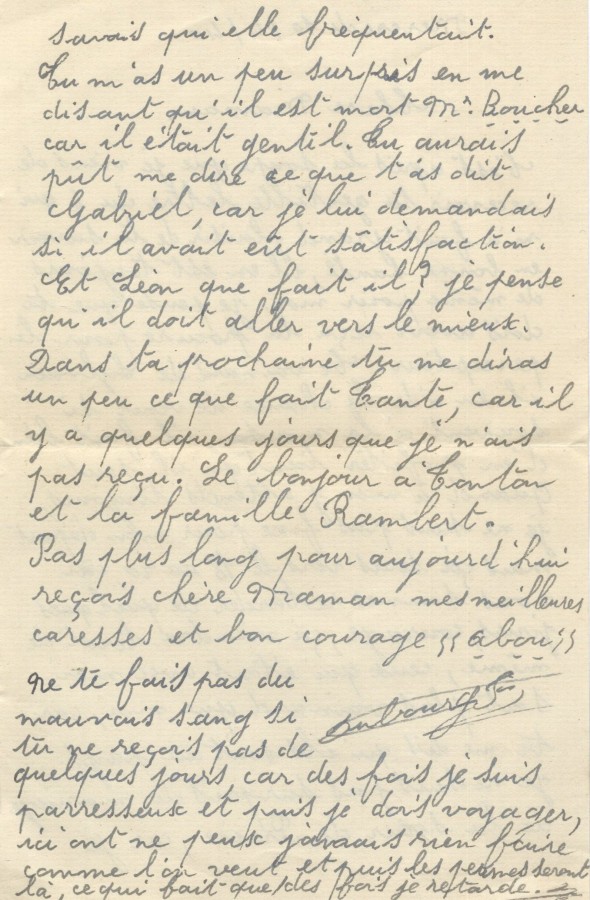 savais qui elle fréquentait.
Tu m'as un peu surpris en me
disant qu'il est mort Mr. Boucher
car il était gentil. Tu aurais
pût me dire ce que t'as dit
Gabriel, car je lui demandais
si il avait eût satisfaction.
Et Léon que fait il? je pense
qu'il doit aller vers le mieux.
Dans ta prochaine tu me diras
un peu ce que fait Tante, car il
y a quelques jours que je n'ais
pas reçu. Le bonjour a Tonton
et la famille Rambert.
Pas plus long pour aujourd'hui
reçois chère Maman mes meilleures
caresses et bon courage
ne te fais pas du
mauvais sang si
tu ne reçois pas de
quelques jours, car des fois je suis
parresseux et puis je dois voyager,
ici ont ne peux jamaais rien faire
comme l'on veut et puis les permes seront
là, ce qui fait que des fois je retarde.